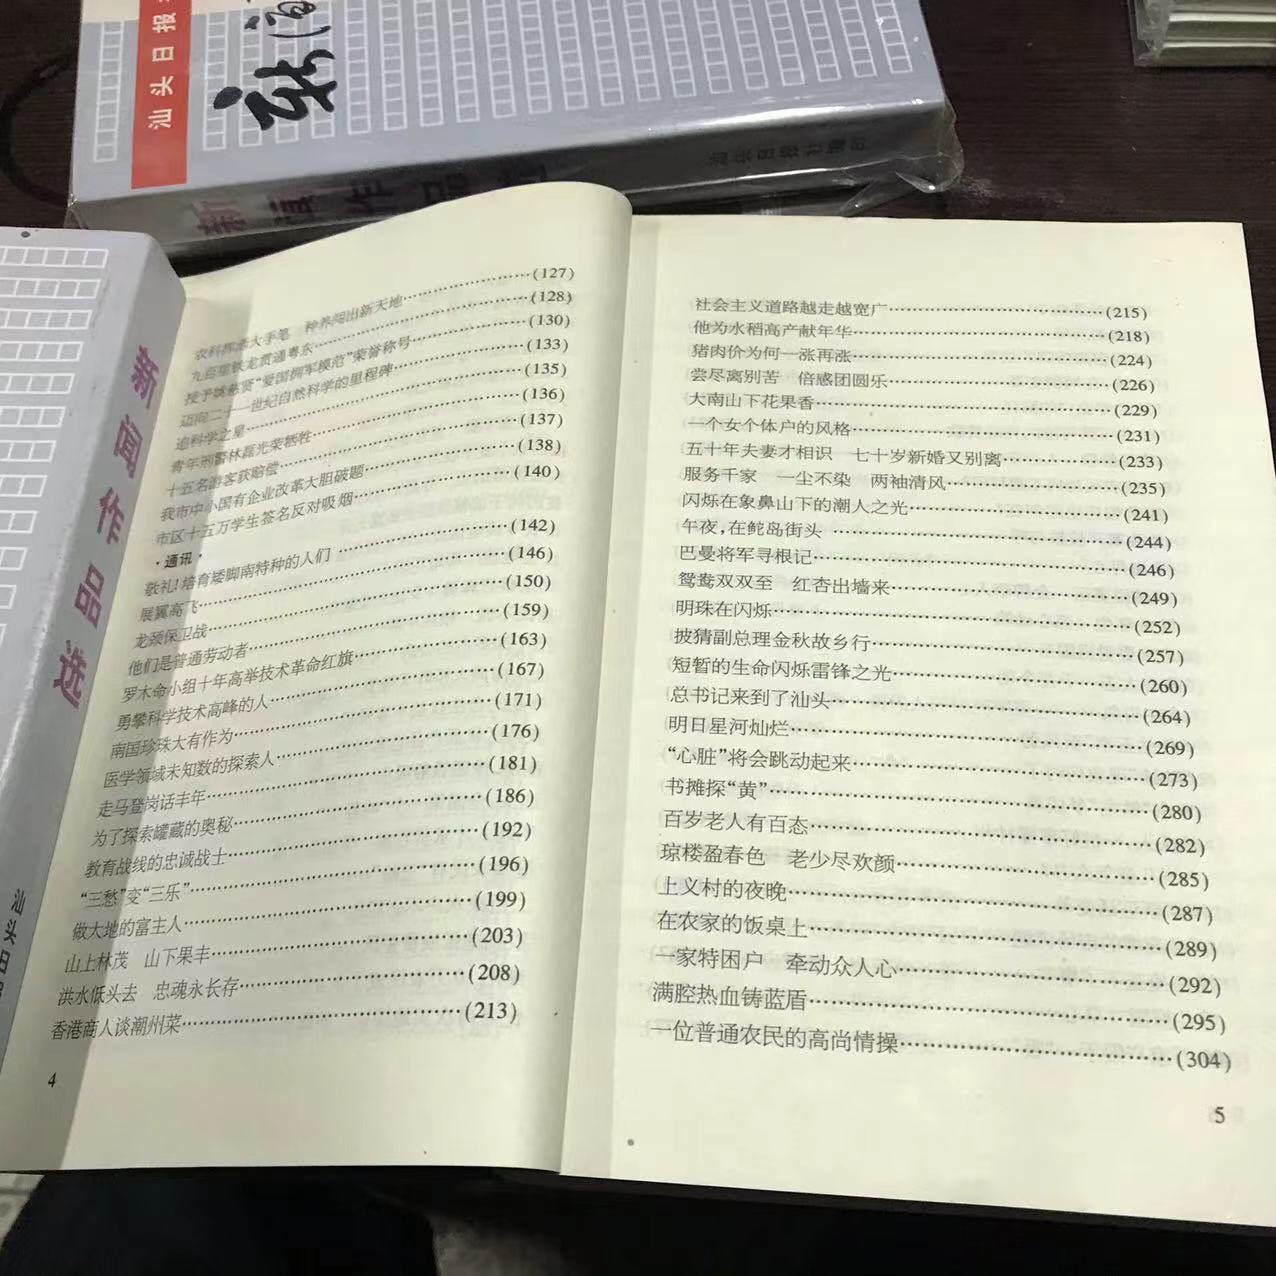 汕头日报
新闻作品选
新闻作品选
农科挥洒大手笔　种养闯出新天地……(127)
九百里铁龙贯通粤东……(128)
授予姚慈贤“爱国拥军模范”荣誉称号……(130)
迈向二十一世纪自然科学的里程碑……(133)
追科学之星……(135)
青年刑警林磊光荣牺牲……(136)
十五名游客获赔偿……(137)
我市中小国有企业改革大胆破题……(138)
市区十五万学生签名反对吸烟……(140)
·通讯·
敬礼!培育矮脚南特种的人们……(142)
展翼高飞……(146)
龙颈保卫战……(150)
他们是普通劳动者……(159)
罗木命小组十年高举技术革命红旗……(163)
勇攀科学技术高峰的人……(167)
南国珍珠大有作为……(171)
医学领域未知数的探索人……(176)
走马登岗话丰年……(181)
为了探索罐藏的奥秘……(186)
教育战线的忠诚战士……(192)
“三愁”变“三乐”……(196)
做大地的富主人……(199)
山上林茂　山下果丰……(203)
洪水低头去　忠魂永长存……(208)
香港商人谈潮州菜……(213)
4
社会主义道路越走越宽广……(215)
他为水稻高产献年华……(218)
猪肉价为何一涨再涨……(224)
尝尽离别苦　倍感团圆乐……(226)
大南山下花果香……(229)
一个女个体户的风格……(231)
五十年夫妻才相识　七十岁新婚又别离……(233)
服务千家　一尘不染　两袖清风……(235)
闪烁在象鼻山下的潮人之光……(241)
午夜,在鮀岛街头……(244)
巴曼将军寻根记……(246)
鸳鸯双双至　红杏出墙来……(249)
明珠在闪烁……(252)
披猜副总理金秋故乡行……(257)
短暂的生命闪烁雷锋之光……(260)
总书记来到了汕头……(264)
明日星河灿烂……(269)
“心脏”将会跳动起来……(273)
书摊探“黄”……(280)
百岁老人有百态……(282)
琼楼盈春色　老少尽欢颜……(285)
上义村的夜晚……(287)
在农家的饭桌上……(289)
一家特困户　牵动众人心……(292)
满腔热血铸蓝盾……(295)
一位普通农民的高尚情操……(304)
5